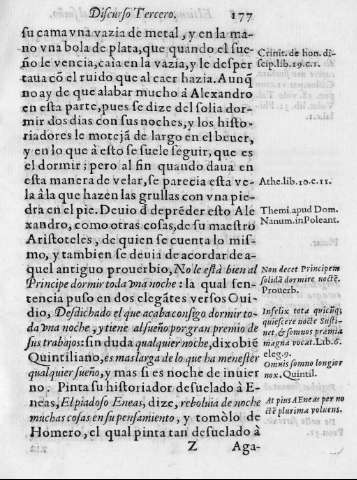 Discurso Tercero. 177
su cama vna vazia de metal, y en la ma-
no vna bola de plata, que quando el sue-
ño le vencia, caia en la vazia, y le desper
taua cõ el ruido que al caer hazia. Aunq̃
no ay de que alabar mucho á Alexandro
en esta parte, pues se dize del solia dor-
mir dos dias con sus noches, y los histo-
riadores le motejã de largo en el beuer,
y en lo que à esto se suele seguir, que es
el dormir; pero al fin quando daua en
esta manera de velar, se parecia esta ve-
la à la que hazen las grullas con vna pie-
dra en el pie. Deuio d̃ prẽder esto Ale
xandro, como otras cosas, de su maestro
Aristoteles, de quien se cuenta lo mis-
mo, y tambien se deuia de acordar de a-
quel antiguo prouerbio, No le está bien al
Principe dormir toda vna noche: la qual sen-
tencia puso en dos elegãtes versos Oui-
dio, Desdichado el que acaba consigo dormir to-
da vna noche, y tiene al sueño por gran premio de
sus trabajos: sin duda qualquier noche, dixo biẽ
Quintiliano, es mas larga de lo que ha menester
qualquier sueño, y mas si es noche de inuier
no. Pinta su historiador desuelado à E-
neas, El piadoso Eneas, dize, reboluia de noche
muchas cosas en su pensamiento, y tomòlo de
Homero, el qual pinta tan desuelado à
Z Aga-
Crinit. de hon. di-
scip. lib. 19. c. 1.
Athe. lib. 10. c. 11.
Themi. apud Dom.
Nanum. in Poleant.
Non decet Principem
solidã dormire noctẽ.
Prouerb.
Infelix tota quicũq;
quiescere nocte Susti-
net, & somnos præmia
magna vocat. Lib. 6.
eleg. 9.
Omnis somno longior
nox. Quintil.
At pius Aeneas per no-
ctẽ plurima voluens.